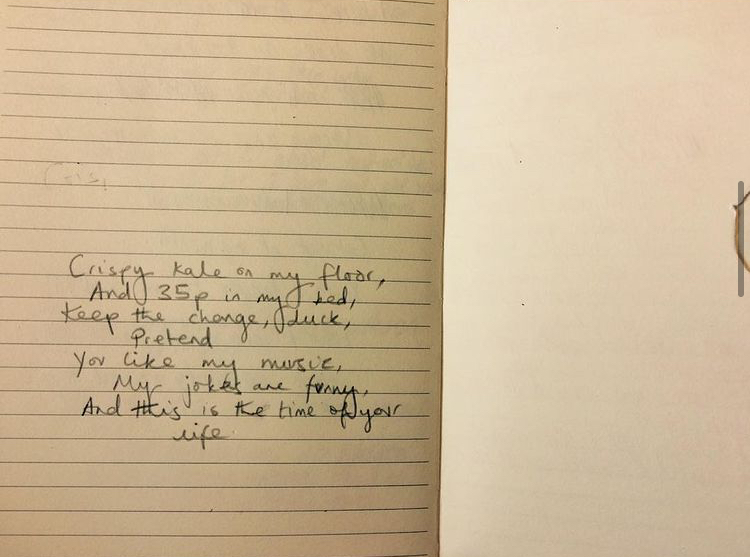 Crispy kale on my floor,
And 35p in my bed,
Keep the change, duck,
Pretend
You like my music,
My jokes are funny,
And this is the time of your
life